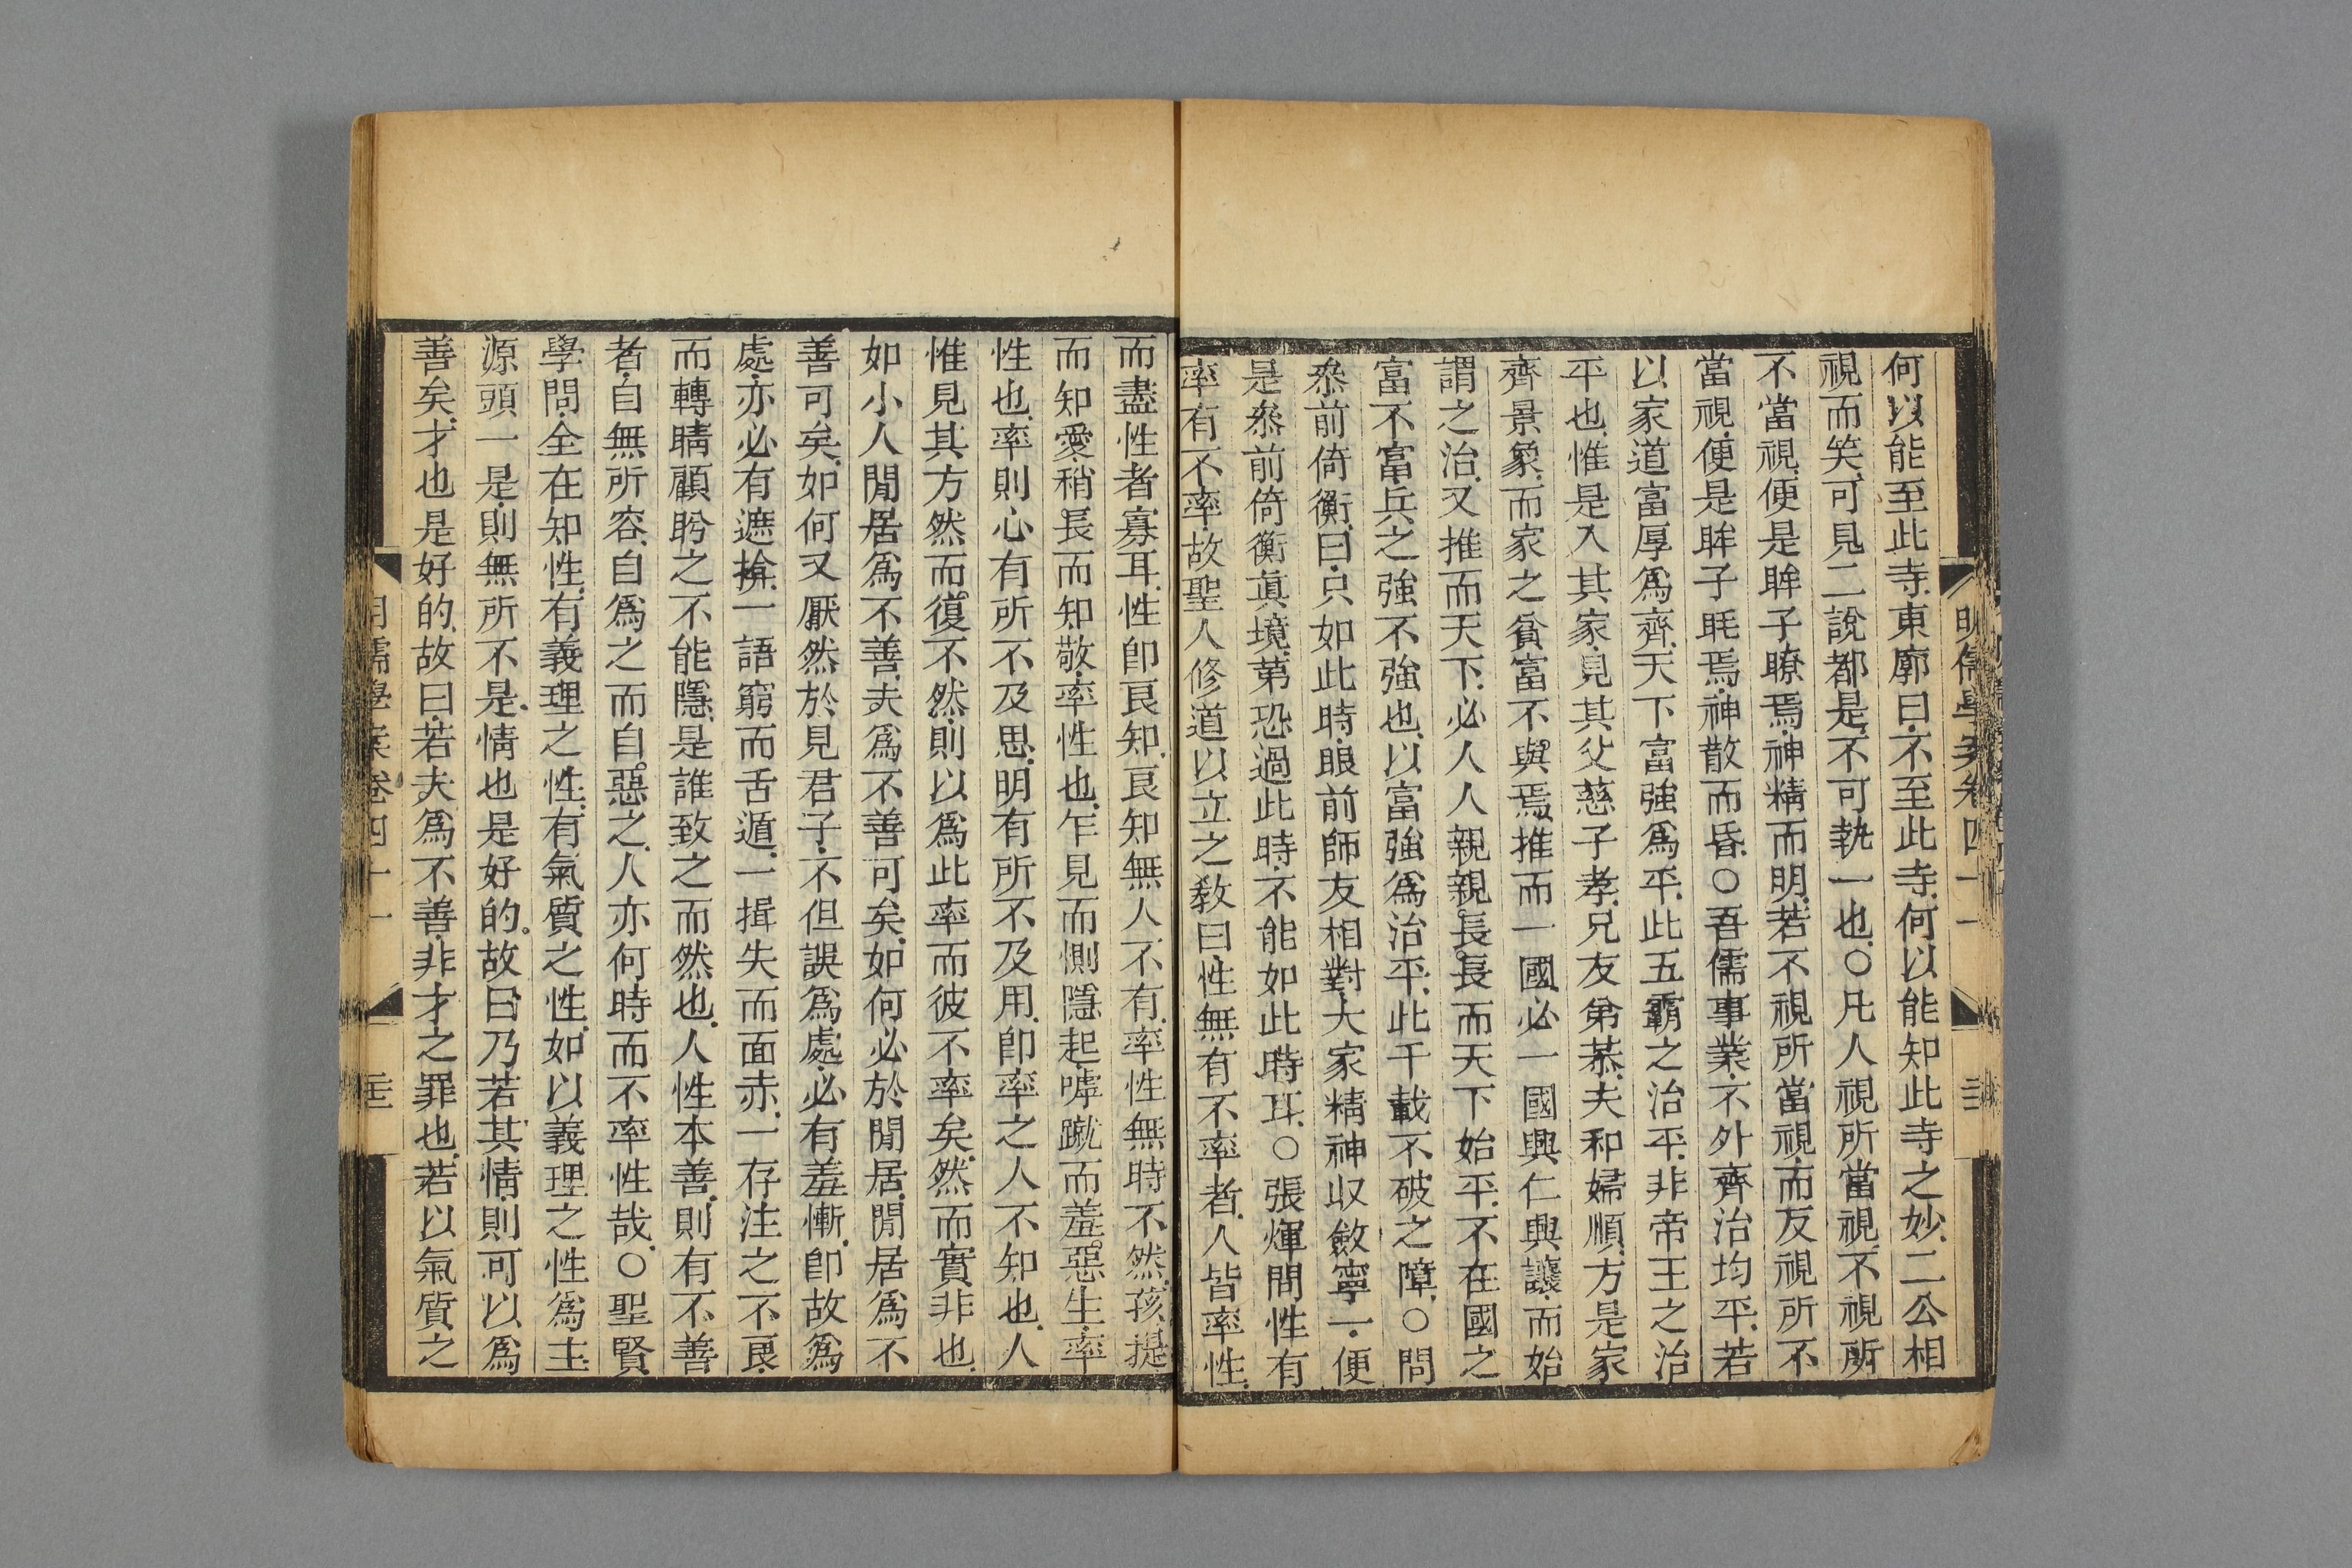 何以能至此寺東廓曰不至此寺何以能知此寺之妙二公相
視而笑可見二說都是不可執一也○凡人視所當視不視所
不當視便是眸子瞭焉神精而明若不視所當視而反視所不
當視便是眸子眊焉神散而昏○吾儒事業不外齊治均平若
以家道富厚爲齊天下富強爲平此五霸之治平非帝王之治
平也惟是入其家見其父慈子孝兄友弟恭夫和婦順方是家
齊景象而家之貧富不與焉推而一國必一國興仁興讓而始
謂之治又推而天下必人人親親長長而天下始平不在國之
富不富兵之強不強也以富強爲治平此千載不破之障○問
叅前倚衡曰只如此時眼前師友相對大家精神収斂寧一便
是叅前倚衡真境第恐過此時不能如此時耳○張煇問性有
率有不率故聖人修道以立之敎曰性無有不率者人皆率性
而盡性者寡耳性卽良知良知無人不有率性無時不然孩提
而知愛稍長而知敬率性也乍見而惻隱起嘑蹴而羞惡生率
性也率則心有所不及思明有所不及用卽率之人不知也人
惟見其方然而復不然則以爲此率而彼不率矣然而實非也
如小人閒居爲不善夫爲不善可矣如何必於閒居閒居爲不
善可矣如何又厭然於見君子不但誤爲處必有羞慚卽故爲
處亦必有遮揜一語窮而舌遁一揖失而面赤一存注之不良
而轉睛顧盼之不能隱是誰致之而然也人性本善則有不善
者自無所容自爲之而自惡之人亦何時而不率性哉○聖賢
學問全在知性有義理之性有氣質之性如以義理之性爲主
源頭一是則無所不是情也是好的故曰乃若其情則可以爲
善矣才也是好的故曰若夫爲不善非才之罪也若以氣質之
明儒學案卷四十一